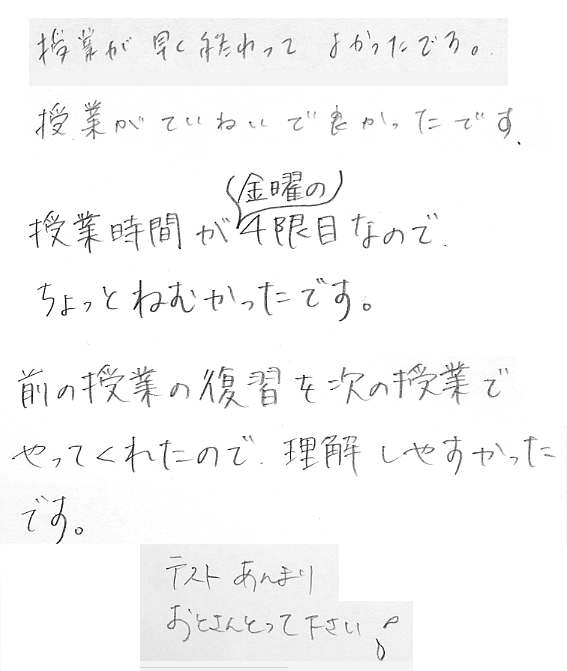 授業が早く終わってよかったでろ。
授業がていねいで良かったです.
(金曜の)
授業時間が4限目なので、
ちょっとねむかったです。
前の授業の復習を次の授業で
やってくれたので、理解しやすかった
です。
テストあんまり
おとさんとって下さい!